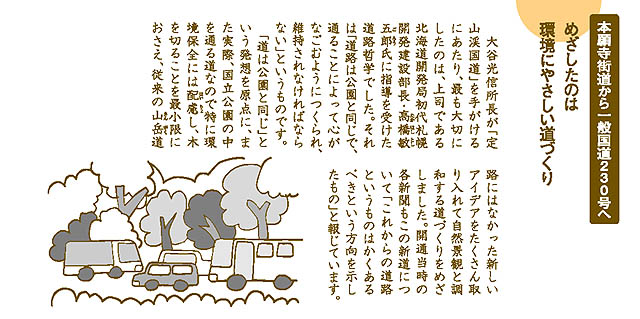 本願寺街道から一般国道230号へ
めざしたのは
環境にやさしい道づくり
大谷光信所長が「定
山渓国道」を手がける
にあたり、最も大切に
したのは、上司である
北海道開発局初代札幌
開発建設部長・高橋敏
五郎氏に指導を受けた
道路哲学でした。それ
は「道路は公園と同じで、
通ることによって心が
なごむようにつくられ、
維持されなければなら
ない」というものです。
「道は公園と同じ」と
いう発想を原点に、ま
た実際、国立公園の中
を通る道なので特に環
境保全には配慮し、木
を切ることを最小限に
おさえ、従来の山岳道
路にはなかった新しい
アイデアをたくさん取
り入れて自然景観と調
和する道づくりをめざ
しました。開通当時の
各新聞もこの新道につ
いて「これからの道路
というものはかくある
べきという方向を示し
たもの」と報じています。